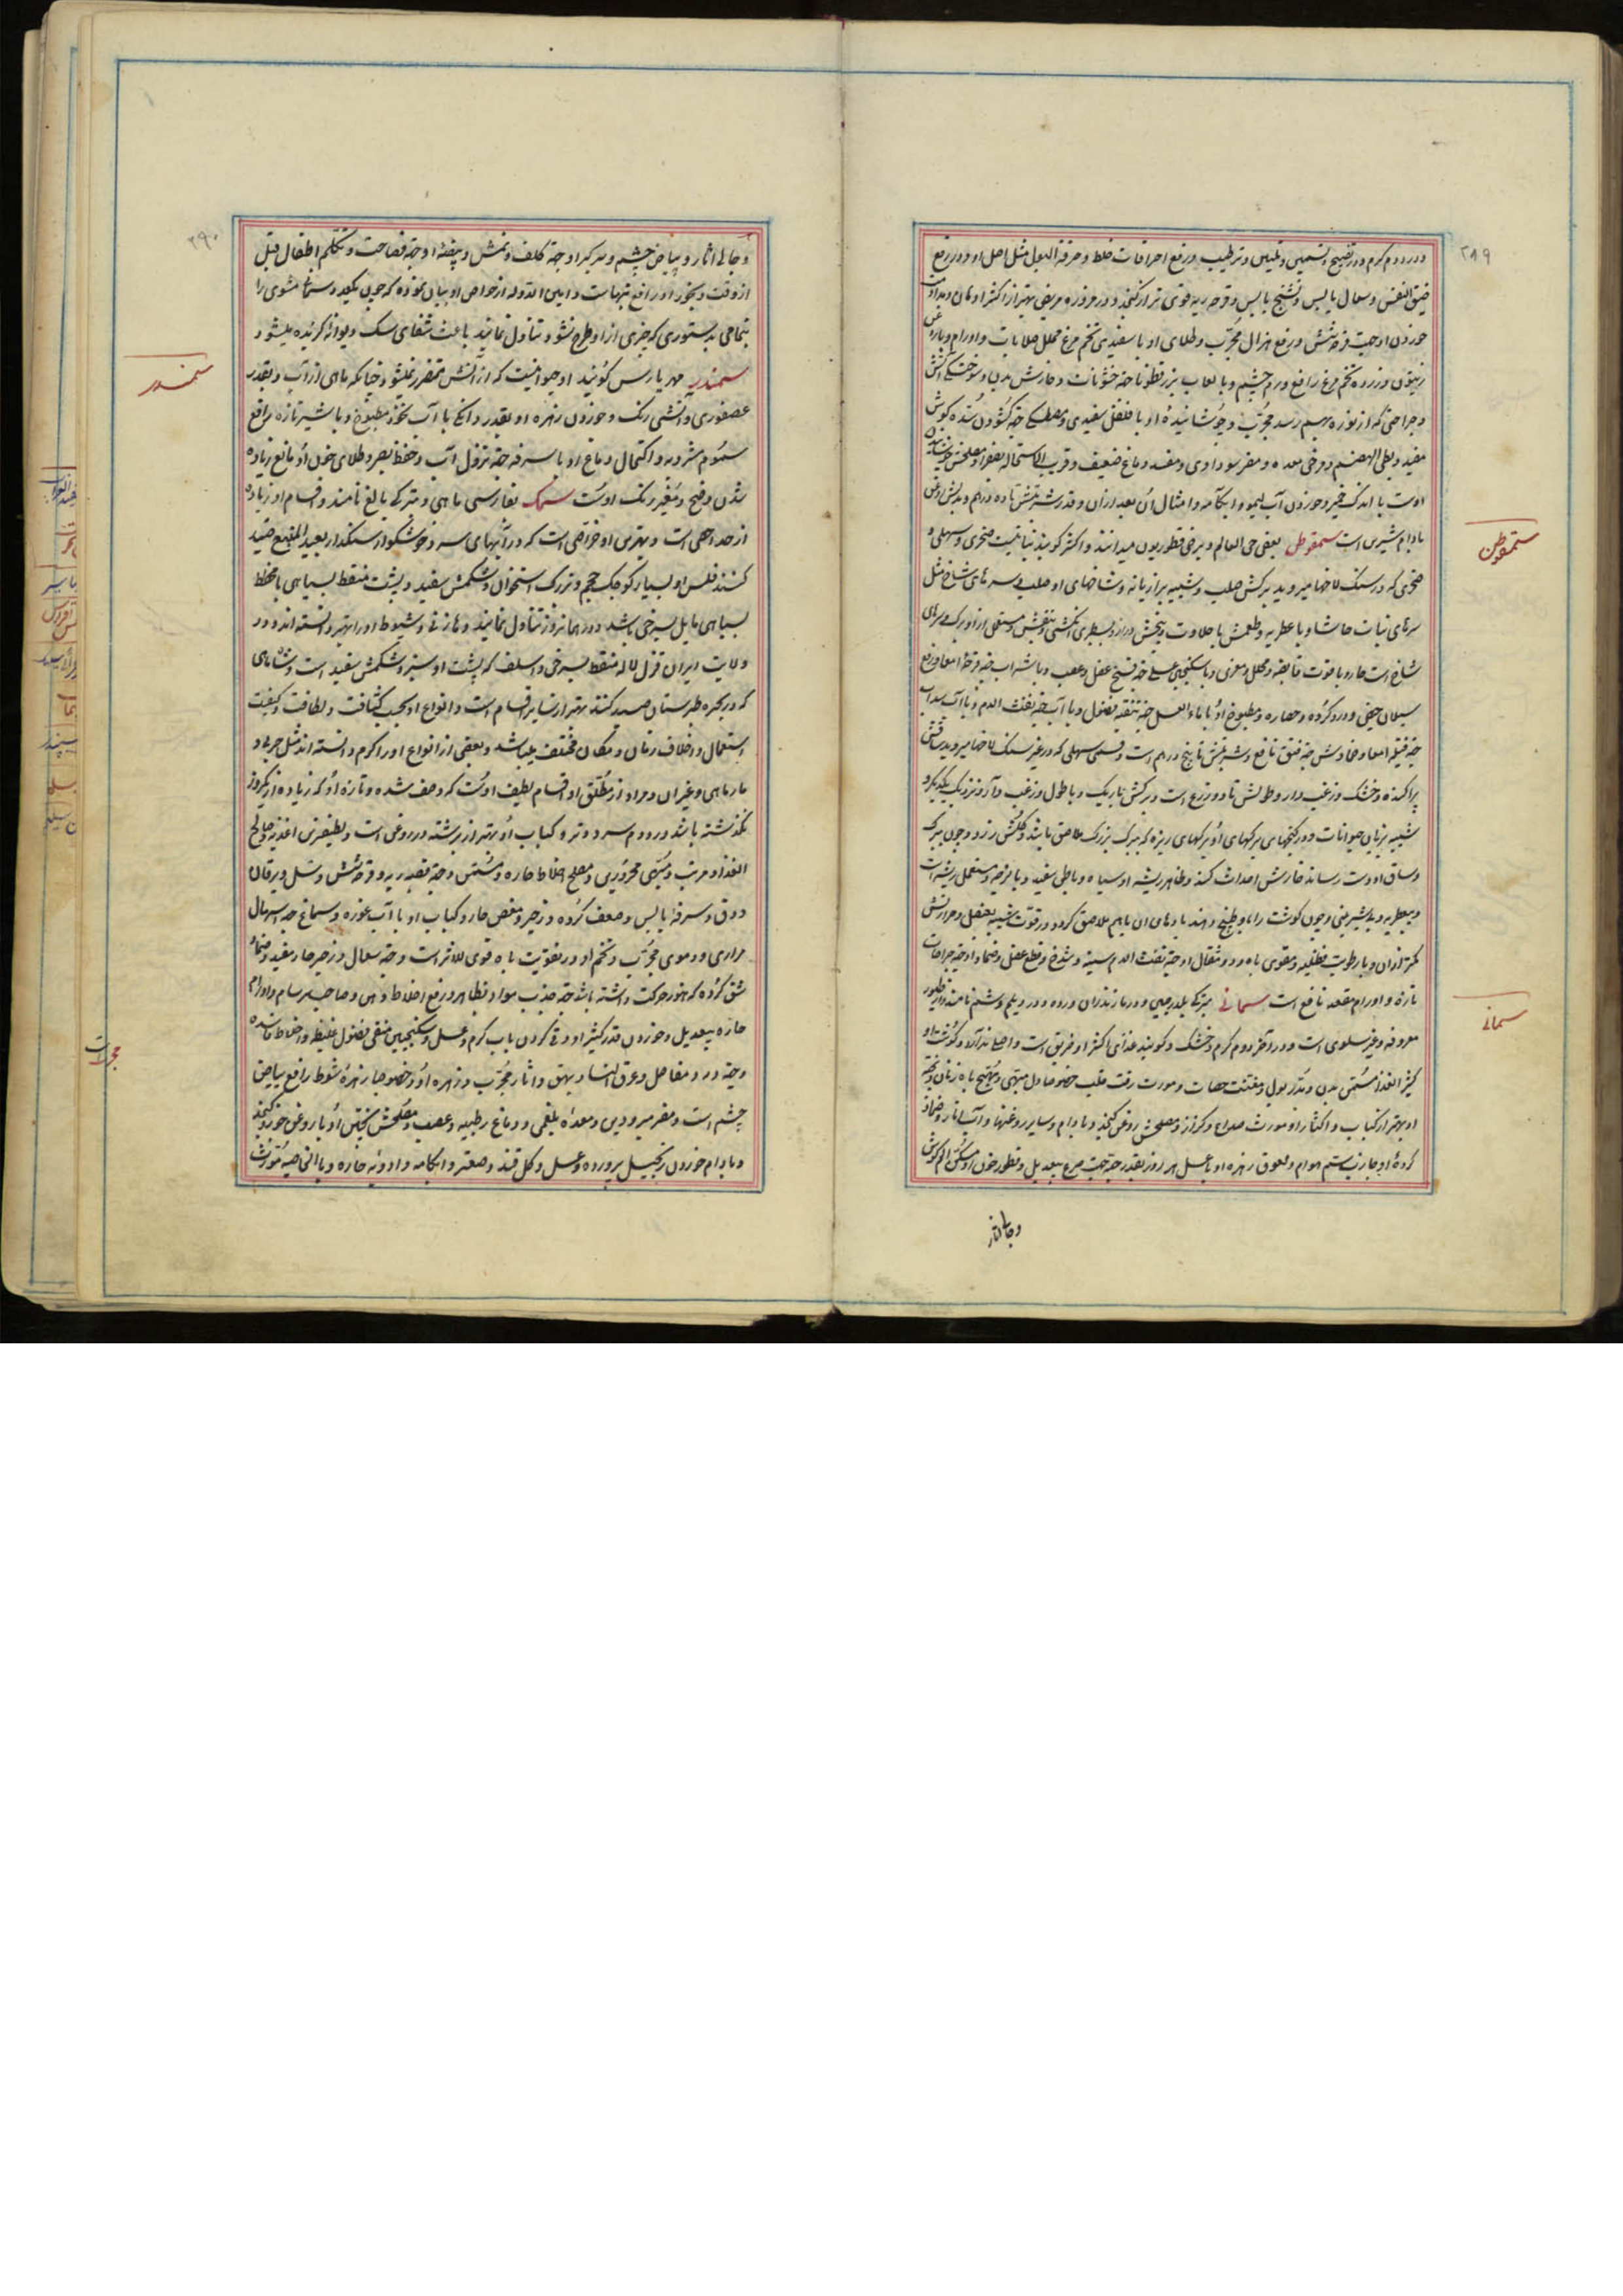 ۲۸۹
در دوم گرم و در تنضیج و تسمین و تلیین و ترطیب و رفع احراقات خلط و حرقة البول مثل اصل او و در رفع
ضیق النفس و سعال یابس و تشنج یابس و قرحه ریه قوی تر از کنجد و در
خوردن او جهت قرحه شش و رفع هزال مجرب و طلای او با سفیدی تخم مرغ محلل صلابات و اورام
زیتون و زرده تخم مرغ رافع ورم چشم و با لعاب بزرقطونا جهة خشونات و خارش بدن و سوختگی آتش
و جراحتی که از نوره بهم رسد مجرب و جوشانیده او با فلفل سفیدی و مصطکی جهة گشودن شده گوش
مفید و بطی الهضم و مرخی معده و مضر سوداوی و مفسد دماغ ضعیف و قریب الاستحاله بصفرا و مصلحش
اوست با اندک خمیر و خوردن آب لیمو و آبکامه و امثال آن بعد از آن و قدر شربتش تا ده درهم و بدلش
بادام شیرین است سمقوطن بعضی حی العالم و برخی قنطوریون میدانند و اکثر گویند نباتیست صخری و سهلی و
صخری که در سنگلاخها میروید برگش صلب و شبیه برازیانه و شاخهای او صلب و سرهای شاخ مثل
سرهای نبات حاشا و با عطریه و طعمش با حلاوت و بیخش دراز و بسطبری انگشتی و
شاخ است حار و با قوت قابضه و محلل و مغری و با سکنجبین عسلی جهة فسخ عضل و عصب و با شراب جهة قرحه امعا و رفع
سیلان حیض و درد گرده و عصاره و مطبوخ او با ماء العسل جهة تنقیه فضول و با آب جهة نفث الدم و با آب سداب
جهة قیله امعا و ضمادش جهة فتق نافع و شربتش تا پنج درهم است و قسم سهلی که در غیر سنگلاخها میروید ساقش
پراکنده و خشک و زغب دار و طولش تا دو ذرع است و برگش باریک و با طول و زغب دار و نزدیک بیکدیگر و
شبیه بزبان حیوانات و در کنجهای برگهای او برگهای ریزه که ببرگ بزرگ ملاصق باشد و گلش زرد و چون برگ
و ساق او دست رساند خارش احداث کند و ظاهر ریشه او سیاه و باطن سفید و با لزوجه و مستعمل ریشه است
و بیعطریه و بیشیرینی و چون گوشت را با او طبخ دهند پارهای آن باهم ملاصق گردد و در قوت شبیه بعنصل و حرارتش
کمتر از آن و با رطوبت فضلیه و مقوی باه و دو مثقال او جهة نفث الدم سینه و شدخ و قطع عضل و ضماد او جهة جراحات
تازه و اورام مقعد نافع است سمانی بترکی بلدرچین و در مازندران ورده و در دیلم وشم نامند از طیور
معروفه و غیر سلوی است و در آخر دوم گرم و خشک و گویند غذای اکثر او خربق است و احیا ندارد و گوشت او
کثیر الغذا مسمن بدن و مدر بول و مفتت حصات و مورث رقت قلب خصوصا دل مبهی و مهیج باه زنان و پخته
او بهتر از کباب و اکثار او مورث صداع و کزاز و مصلحش روغن کنجد و بادام و سایر روغنها و آب انار و ضماد
گرده او جاذب سم هوام و لعوق زهره او با عسل هر روز بقدر حبه جهت صرع بیعدیل و قطور خون او مسکن الم گوش
و جالی آثار
سمقوطن
سمانی
۲۹۰
و جالی آثار و بیاض چشم و سرگین او جهة کلف و نمش و بیضه او جهة فصاحت و تکلم اطفال قبل
از وقت و بخور او رافع تبهاست و امین الدوله از خواص او بیان نموده که چون یکعدد سمانی مشوی را
بتمامی بدستوری که چیزی از او طرح نشود تناول نمایند باعث شفای سک دیوانه گزیده میشود
سمندر مهریارس گویند او حیوانیست که از آتش متضرر نمیشود چنانکه ماهی از آب و بقدر
عصفوری و آتشی رنک و خوردن زهره او بقدر دانکی با آب نخود مطبوخ و با شیر تازه رافع
سموم مشروبه و اکتحال دماغ او با سرمه جهة نزول آب و حفظ بصر و طلای خون او مانع زیاده
شدن وضح و مغیر رنک اوست سمک بفارسی ماهی و بترکی بالغ نامند و اقسام او زیاده
از حد و حصی است و بهترین او رضراضی است که در آبهای سرد و خوشگوار سنگدار بعید المقبع صید
کنند فلس او بسیار کوچک حجم و بزرگ استخوان و شکمش سفید و پشت منقط بسیاهی یا مخطط
بسیاهی مایل بسرخی باشد و در همانروز تناول نمایند و مازنی و شبوط او را بهتر دانسته اند و در
ولایت ایران قزل لاله منقط بسرخی و اسلف که پشت او سبز و شکمش سفید است و شاه ماهی
که در بحیره طبرستان صید کنند بهتر از سایر اقسام است و انواع او بحسب کثافت و لطافت و کیفیت
استعمال و اختلاف زمان و مکان مختلف میباشد و بعضی از انواع او را گرم دانسته اند مثل جری و
مارماهی و غیر آن و مراد از مطلق او اقسام لطیف اوست که وصف شده و تازه او که زیاده از یکروز
نگذشته باشد در دوم سرد و تر و کباب او بهتر از برشته در روغن است و لطیفترین اغذیه صالح
الغذا و مرتب و مبهی محروری و مصلح اخلاط حاره و مسمن و جهة قصبه ریه و قرحه شش و سل و یرقان
و دق و سرفه یابس و ضعف گرده و زحیر و مغص حار و کباب او با آب غوره و سماق جهة اسهال
مراری و دموی مجرب و تخم او در تقویت باه قوی الاثر است و جهة سعال و زحیر حار مفید و ضماد
شق کرده که هنوز حرکت داشته باشد جهة جذب مواد بظاهر و رفع اخلاط دهن و صاحب سرسام و اورام
حاره بیعدیل و خوردن قدر کثیر او و قی کردن با آب گرم و عسل و سکنجبین منقی فضول غلیظه و اخلاط فاسده
و جهة درد مفاصل و عرق النسا و بهق و آثار مجرب و زهره او خصوصا زهره شبوط رافع بیاض
چشم است و مضر مبرودین و معده بلغمی و دماغ رطبیه و عصب و مصلحش پختن او با روغن جوز و کنجد
و بادام خوردن زنجبیل پرورده و عسل و گلقند و صعتر و آبکامه و ادویه حاره و با الخاصیه مورث
سمندر
مجربات